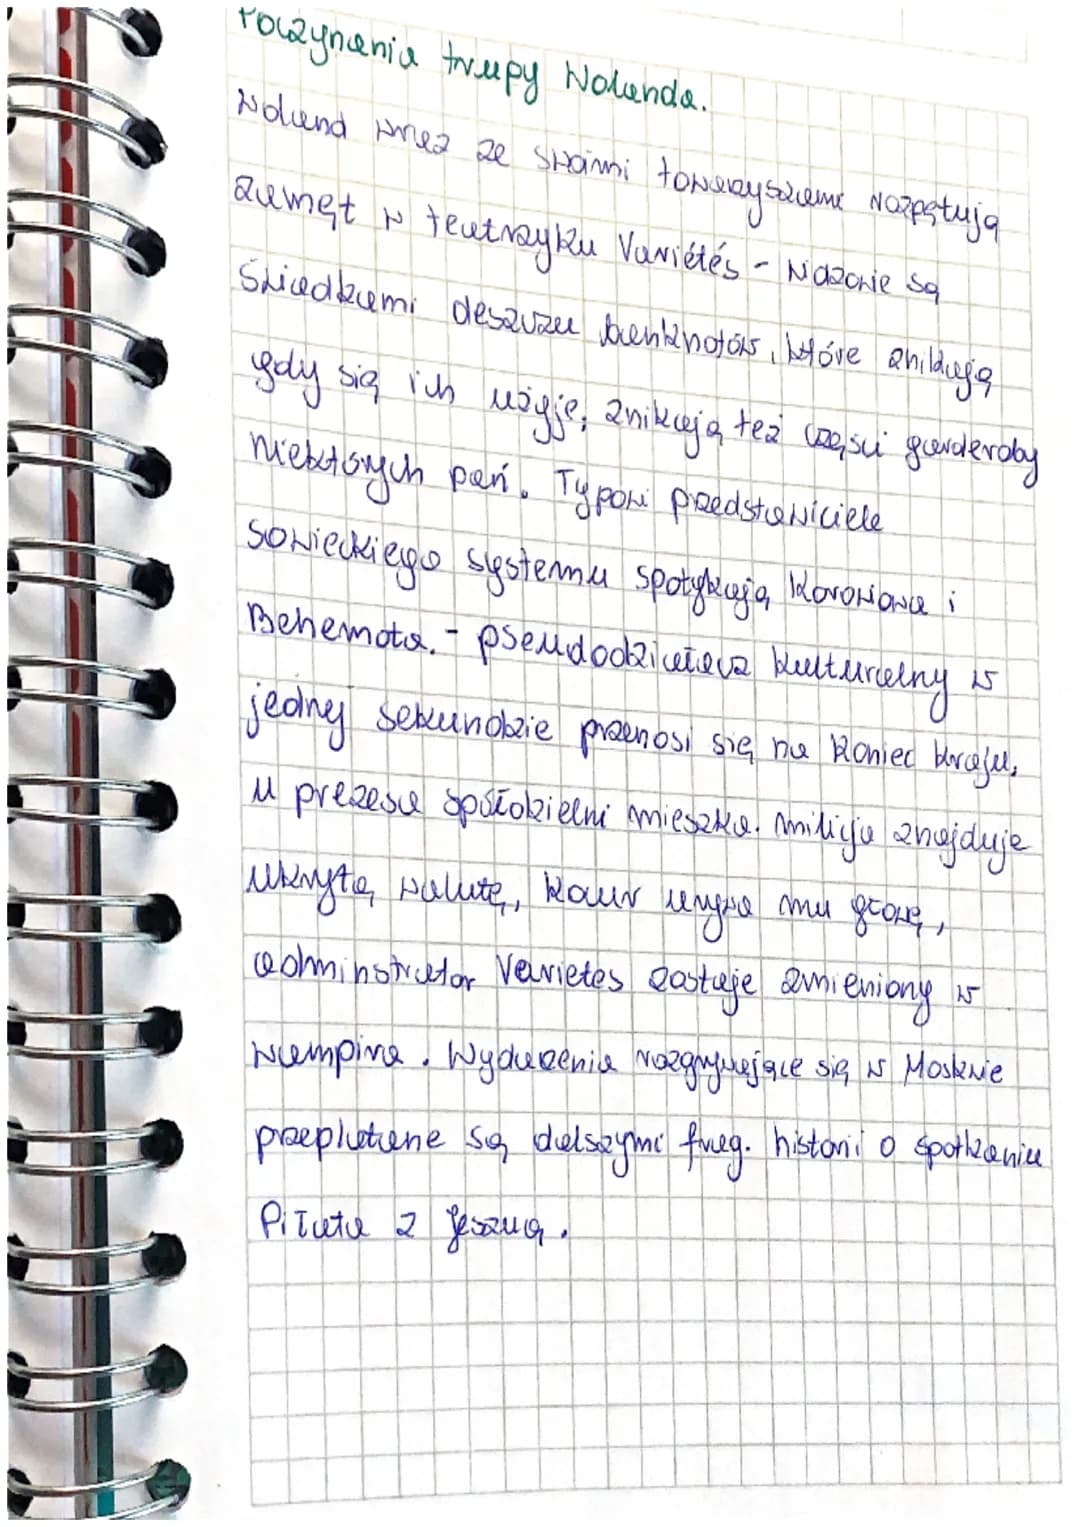 Poczynania trupy Wolanda.
Woland wraz ze swaimi towarzyszami rozpętują
zamęt w teatrzyku Variétés - widzowie są
świadkami deszczu banknotów, które znikają
gdy się ich użyje, znikają też części garderoby
niektórych pań. Typowi przedstawiciele
sowieckiego systemu spotykają Korowiowa i
Behemota. - pseudodziałacz kulturalny w
jednej sekundzie przenosi się na koniec kraju,
u prezesa spółdzielni mieszka. milicja znajduje
ukrytą walutę, kour urywa mu głowę,
adminstrator Varietes zostaje zmieniony w
wampira. Wydarzenia rozgrywające się w Moskwie
przeplatane są dalszymi frag. historii o spotkaniu
Piłata z Jeszuą.